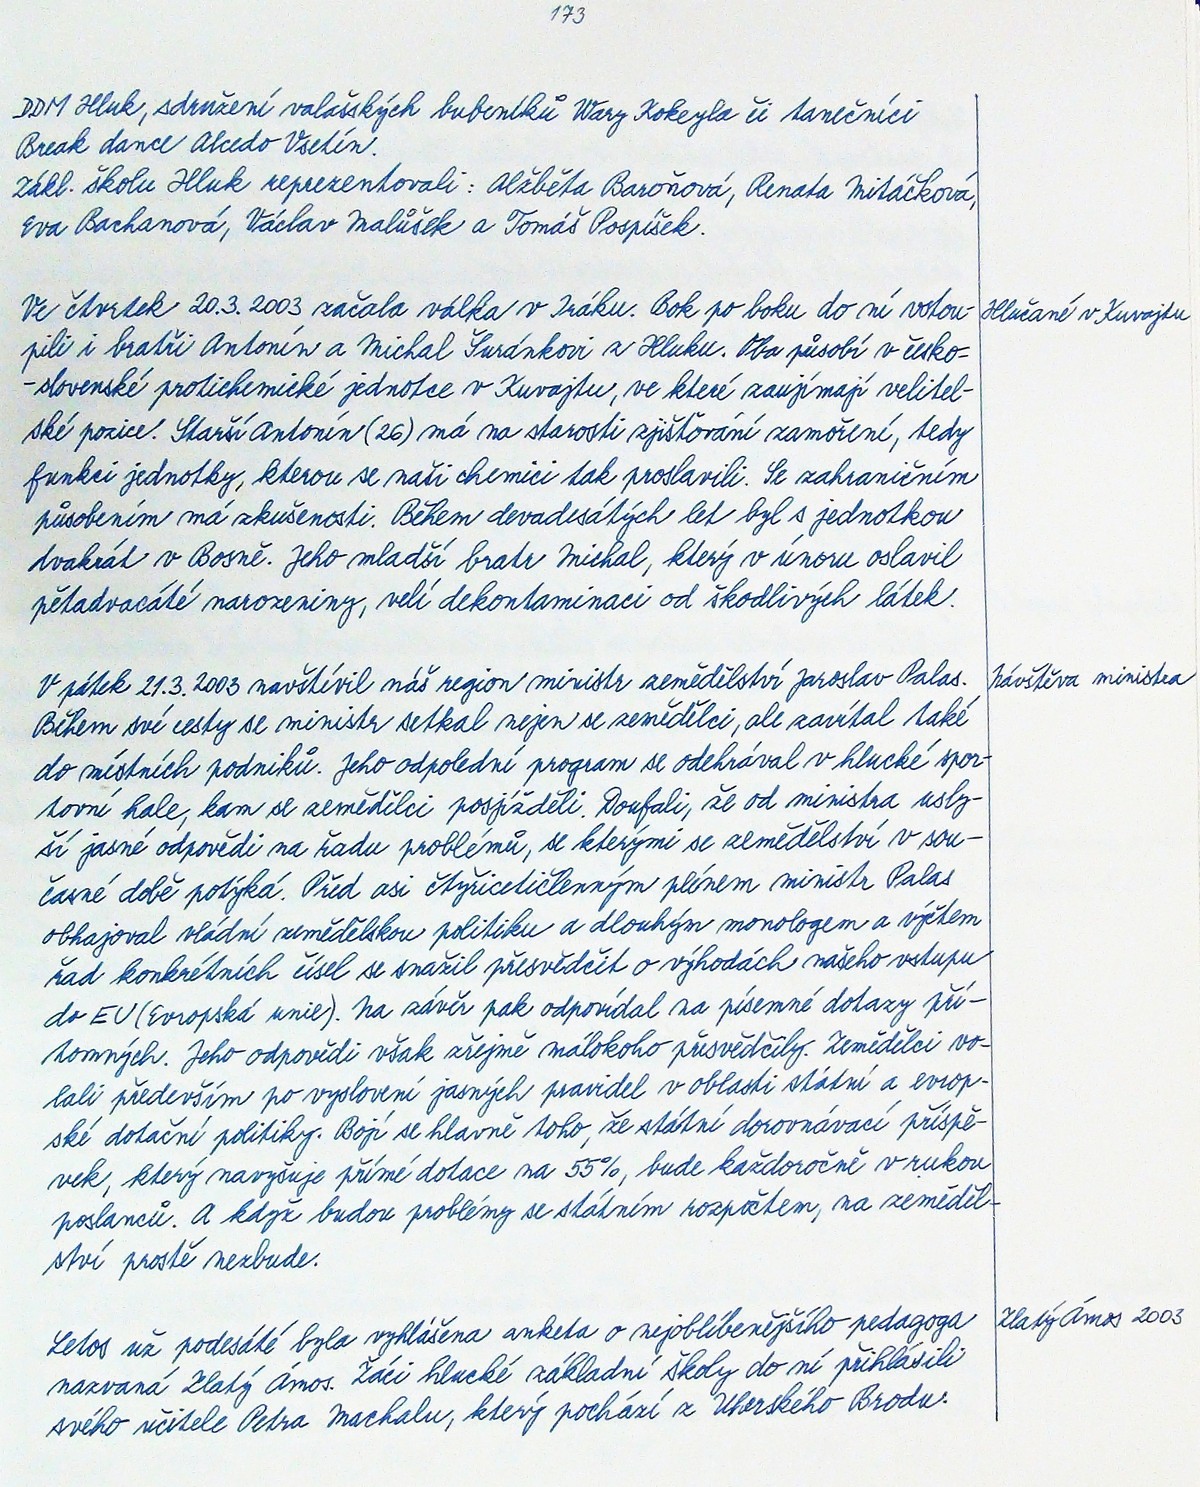 173
DDM Hluk, sdružení valašských bubeníků Wary Kokeyla či tanečníci
Break dance Alcedo Vsetín.
Zákl. školu Hluk reprezentovali: Alžběta Baroňová, Renata Mitáčková,
Eva Bachanová, Václav Malůšek a Tomáš Pospíšek.
Ve čtvrtek 20.3.2003 začala válka v Iráku. Bok po boku do ní vstou-
pili i bratři Antonín a Michal Šuránkovi z Hluku. Oba působí v česko=
-slovenské protichemické jednotce v Kuvajtu, ve které zaujímají velitel-
ské pozice. Starší Antonín (26) má na starosti zjišťování zamoření, tedy
funkci jednotky, kterou se naši chemici tak proslavili. Se zahraničním
působením má zkušenosti. Během devadesátých let byl s jednotkou
dvakrát v Bosně. Jeho mladší bratr Michal, který v únoru oslavil
pětadvacáté narozeniny, velí dekontaminaci od škodlivých látek.
Hlučané v Kuvajtu
V pátek 21.3.2003 navštívil náš region ministr zemědělství Jaroslav Palas.
Během své cesty se ministr setkal nejen se zemědělci, ale zavítal také
do místních podniků. Jeho odpolední program se odehrával v hlucké spor-
tovní hale, kam se zemědělci posjížděli. Doufali, že od ministra usly-
ší jasné odpovědi na řadu problémů, se kterými se zemědělství v sou-
časné době potýká. Před asi čtyřicetičlenným plénem ministr Palas
obhajoval vládní zemědělskou politiku a dlouhým monologem a výčtem
řad konkrétních čísel se snažil přesvědčit o výhodách našeho vstupu
do EU (Evropská unie). Na závěr pak odpovídal na písemné dotazy pří-
tomných. Jeho odpovědi však zřejmě málokoho přesvědčily. Zemědělci vo-
lali především po vyslovení jasných pravidel v oblasti státní a evrop-
ské dotační politiky. Bojí se hlavně toho, že státní dorovnávací příspě-
vek, který navyšuje přímé dotace na 55%, bude každoročně v rukou
poslanců. A když budou problémy se státním rozpočtem, na zeměděl-
ství prostě nezbude.
Návštěva ministra
Letos už podesáté byla vyhlášena anketa o nejoblíbenějšího pedagoga
nazvaná Zlatý Ámos. Žáci hlucké základní školy do ní přihlásili
svého učitele Petra Machalu, který pochází z Uherského Brodu.
Zlatý Ámos 2003